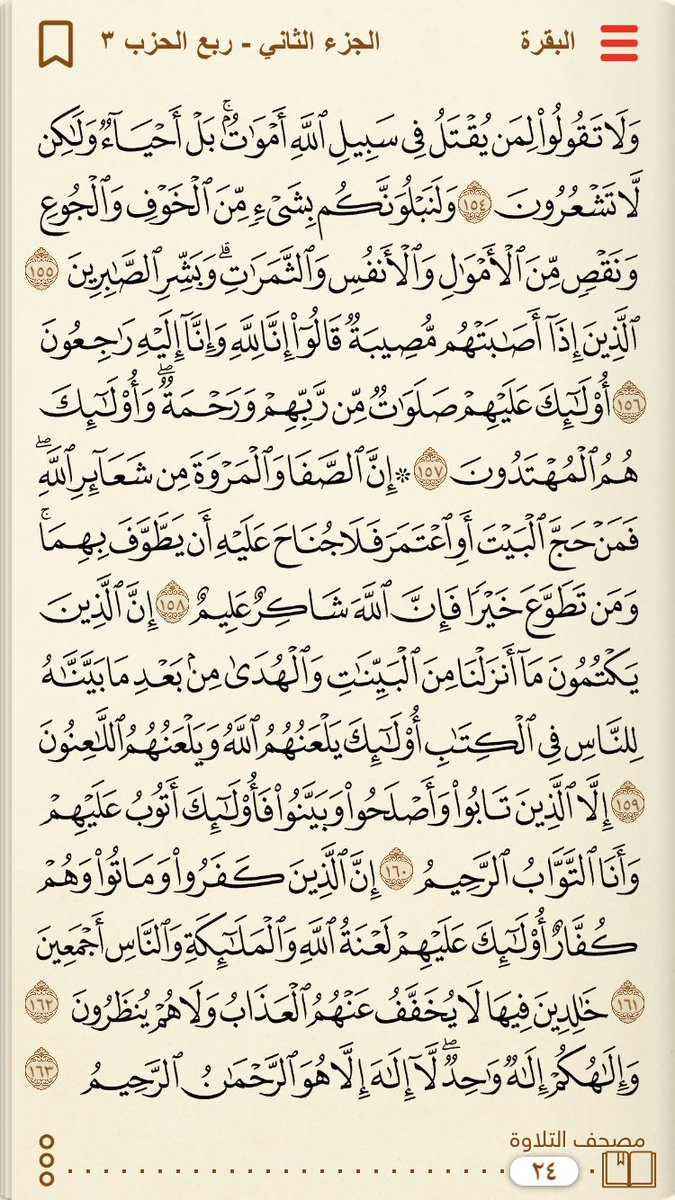 البقرة الجزء الثاني - ربع الحزب ٣
وَلَا تَقُولُوا۟ لِمَن يُقْتَلُ فِى سَبِيلِ ٱللَّهِ أَمْوَٰتٌۢ ۚ بَلْ أَحْيَآءٌ وَلَٰكِن
لَّا تَشْعُرُونَ ١٥٤ وَلَنَبْلُوَنَّكُم بِشَىْءٍ مِّنَ ٱلْخَوْفِ وَٱلْجُوعِ
وَنَقْصٍ مِّنَ ٱلْأَمْوَٰلِ وَٱلْأَنفُسِ وَٱلثَّمَرَٰتِ ۗ وَبَشِّرِ ٱلصَّٰبِرِينَ ١٥٥
ٱلَّذِينَ إِذَآ أَصَٰبَتْهُم مُّصِيبَةٌ قَالُوٓا۟ إِنَّا لِلَّهِ وَإِنَّآ إِلَيْهِ رَٰجِعُونَ
١٥٦ أُو۟لَٰٓئِكَ عَلَيْهِمْ صَلَوَٰتٌ مِّن رَّبِّهِمْ وَرَحْمَةٌ ۖ وَأُو۟لَٰٓئِكَ
هُمُ ٱلْمُهْتَدُونَ ١٥٧ ۞ إِنَّ ٱلصَّفَا وَٱلْمَرْوَةَ مِن شَعَآئِرِ ٱللَّهِ ۖ
فَمَنْ حَجَّ ٱلْبَيْتَ أَوِ ٱعْتَمَرَ فَلَا جُنَاحَ عَلَيْهِ أَن يَطَّوَّفَ بِهِمَا ۚ
وَمَن تَطَوَّعَ خَيْرًا فَإِنَّ ٱللَّهَ شَاكِرٌ عَلِيمٌ ١٥٨ إِنَّ ٱلَّذِينَ
يَكْتُمُونَ مَآ أَنزَلْنَا مِنَ ٱلْبَيِّنَٰتِ وَٱلْهُدَىٰ مِنۢ بَعْدِ مَا بَيَّنَّٰهُ
لِلنَّاسِ فِى ٱلْكِتَٰبِ أُو۟لَٰٓئِكَ يَلْعَنُهُمُ ٱللَّهُ وَيَلْعَنُهُمُ ٱللَّٰعِنُونَ
١٥٩ إِلَّا ٱلَّذِينَ تَابُوا۟ وَأَصْلَحُوا۟ وَبَيَّنُوا۟ فَأُو۟لَٰٓئِكَ أَتُوبُ عَلَيْهِمْ
وَأَنَا ٱلتَّوَّابُ ٱلرَّحِيمُ ١٦٠ إِنَّ ٱلَّذِينَ كَفَرُوا۟ وَمَاتُوا۟ وَهُمْ
كُفَّارٌ أُو۟لَٰٓئِكَ عَلَيْهِمْ لَعْنَةُ ٱللَّهِ وَٱلْمَلَٰٓئِكَةِ وَٱلنَّاسِ أَجْمَعِينَ
١٦١ خَٰلِدِينَ فِيهَا لَا يُخَفَّفُ عَنْهُمُ ٱلْعَذَابُ وَلَا هُمْ يُنظَرُونَ ١٦٢
وَإِلَٰهُكُمْ إِلَٰهٌ وَٰحِدٌ ۖ لَّآ إِلَٰهَ إِلَّا هُوَ ٱلرَّحْمَٰنُ ٱلرَّحِيمُ ١٦٣
مصحف التلاوة
٢٤